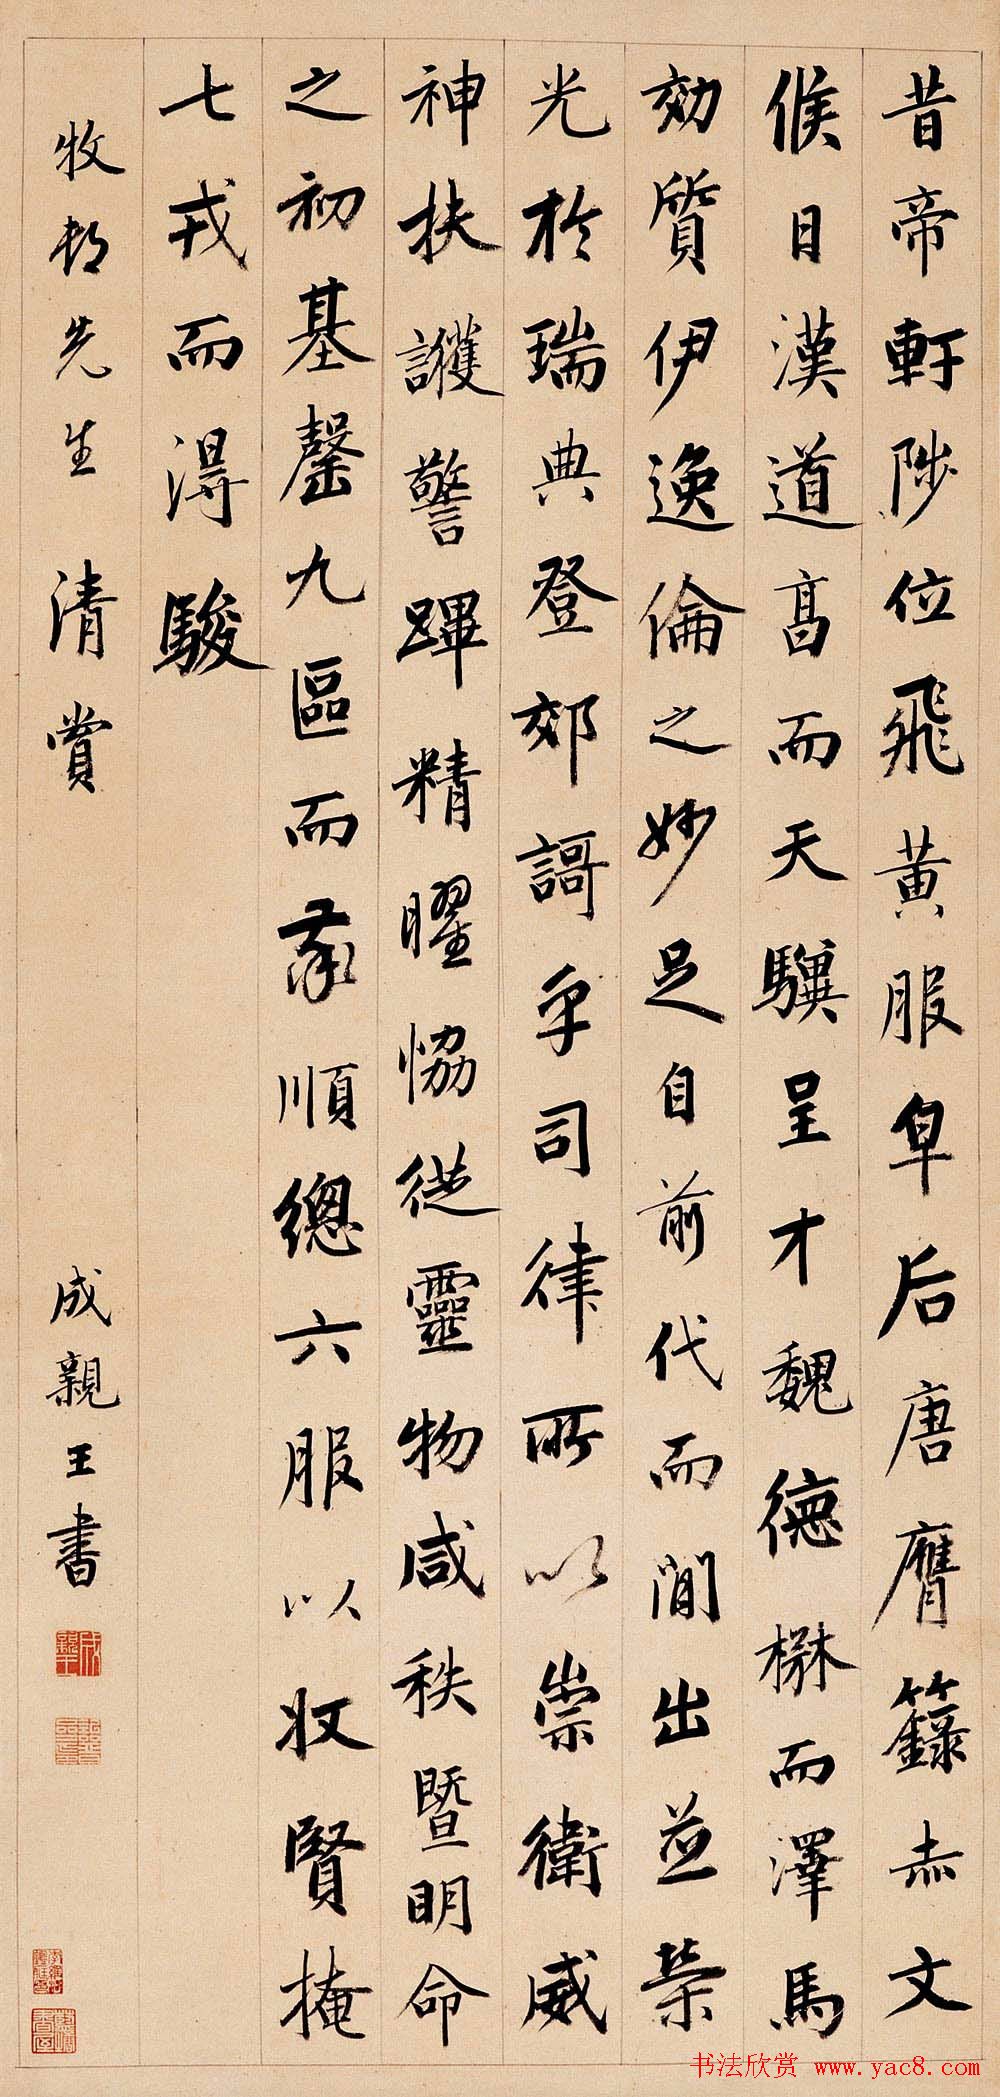 昔帝軒陟位飛黃服皁后唐膺籙赤文
候日漢道髙而天驥呈才魏德楙而澤馬
効質伊逸倫之妙足自前代而間出並榮
光於瑞典登郊謌乎司律所以崇衛威
神扶護警蹕精曜恊從靈物咸秩暨明命
之初基罄九區而率順總六服以收賢掩
七戎而得駿
牧邨先生 清賞
成親王書
书法欣赏 www.yac8.com